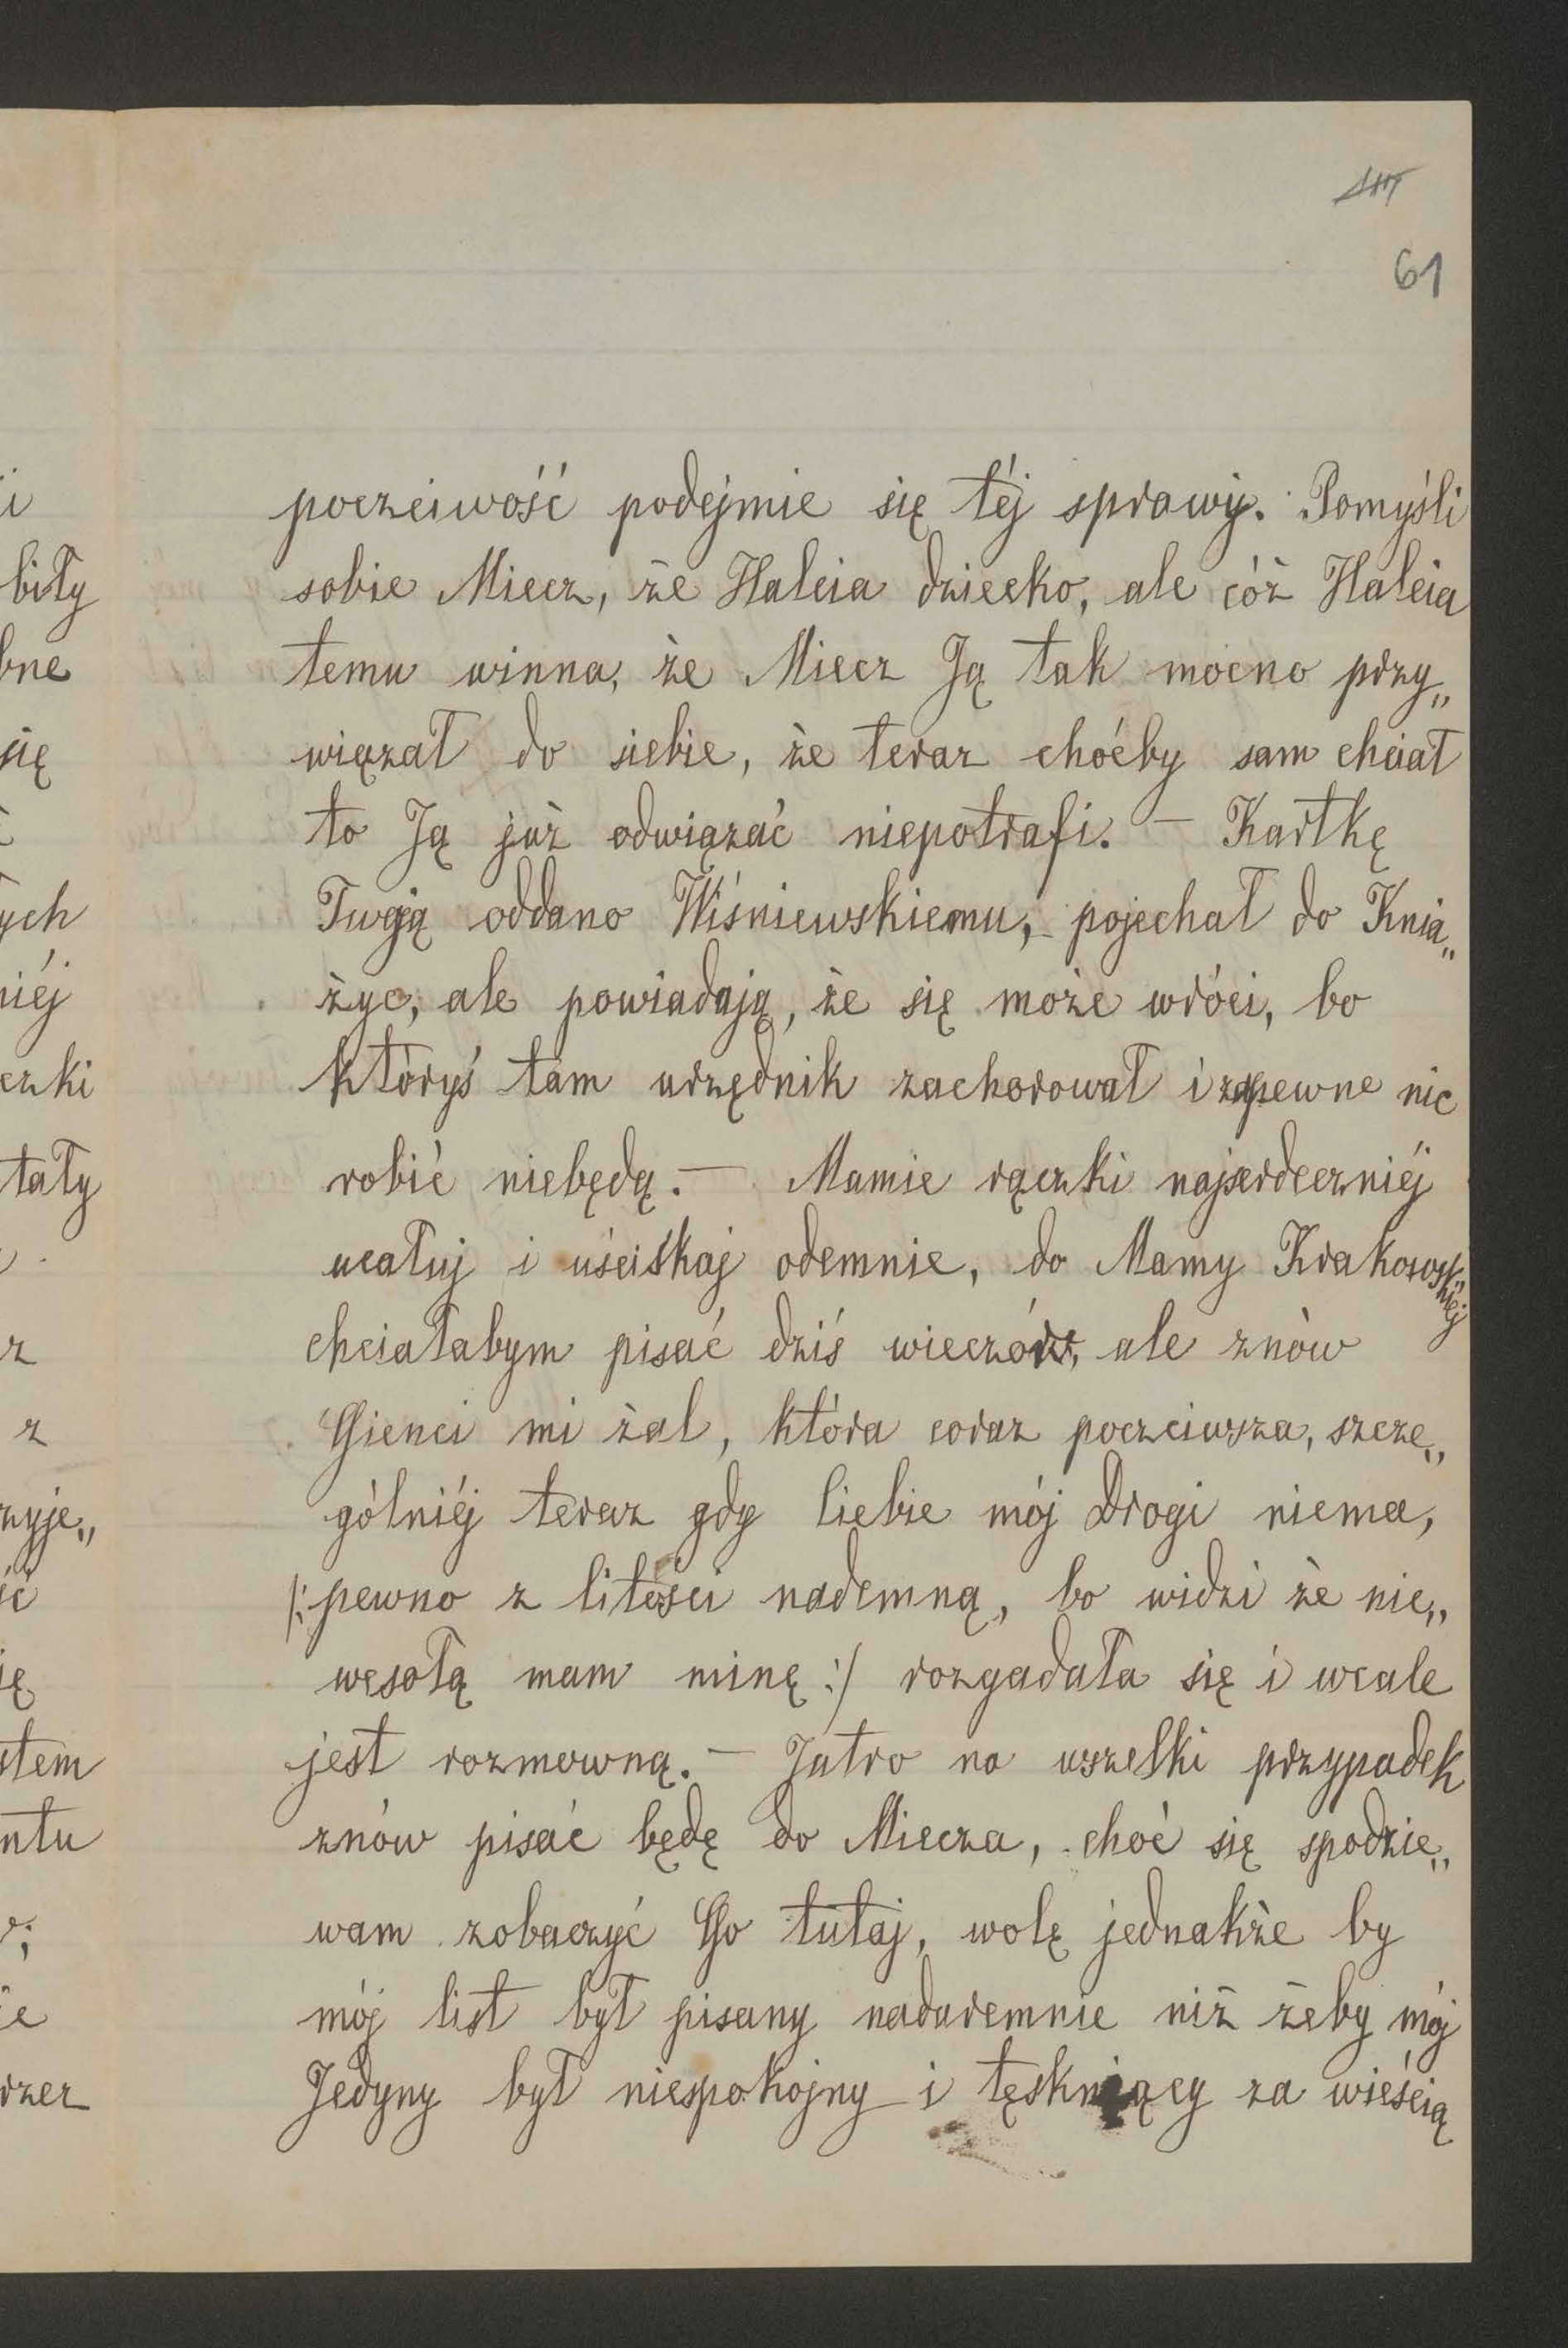 61
poczciwość podejmie się téj sprawy. Pomyśli
sobie Miecz, że Halcia dziecko, ale cóż Halcia
temu winna, że Miecz Ją tak mocno przy„
wiązał do siebie, że teraz choćby sam chciał
to Ją już odwiązać niepotrafi. — Kartkę
Twoją oddano Wiśniewskiemu, pojechał do Knia„
życ, ale powiadają, że się może wróci, bo
któryś tam urzędnik zachorował i zapewne nic
robić niebędą. — Mamie rączki najserdeczniéj
ucałuj i uściskaj odemnie, do Mamy Krakowskiéj
chciałabym pisać dziś wieczór, ale znów
Gienci mi żal, która coraz poczciwsza, szcze„
gólniéj teraz gdy Ciebie mój Drogi niema,
/: pewno z litości nademną, bo widzi że nie„
wesołą mam minę :/ rozgadała się i wcale
jest rozmowną. — Jutro na wszelki przypadek
znów pisać będę do Miecza, choć się spodzie„
wam zobaczyć Go tutaj, wolę jednakże by
mój list był pisany nadaremnie niż żeby mój
Jedyny był niespokojny i tęskniący za wieścią
biły
bne
się
ych
niéj
czki
tały
z
z
zyje„
ść
ię
stem
ntu
ie
rzez